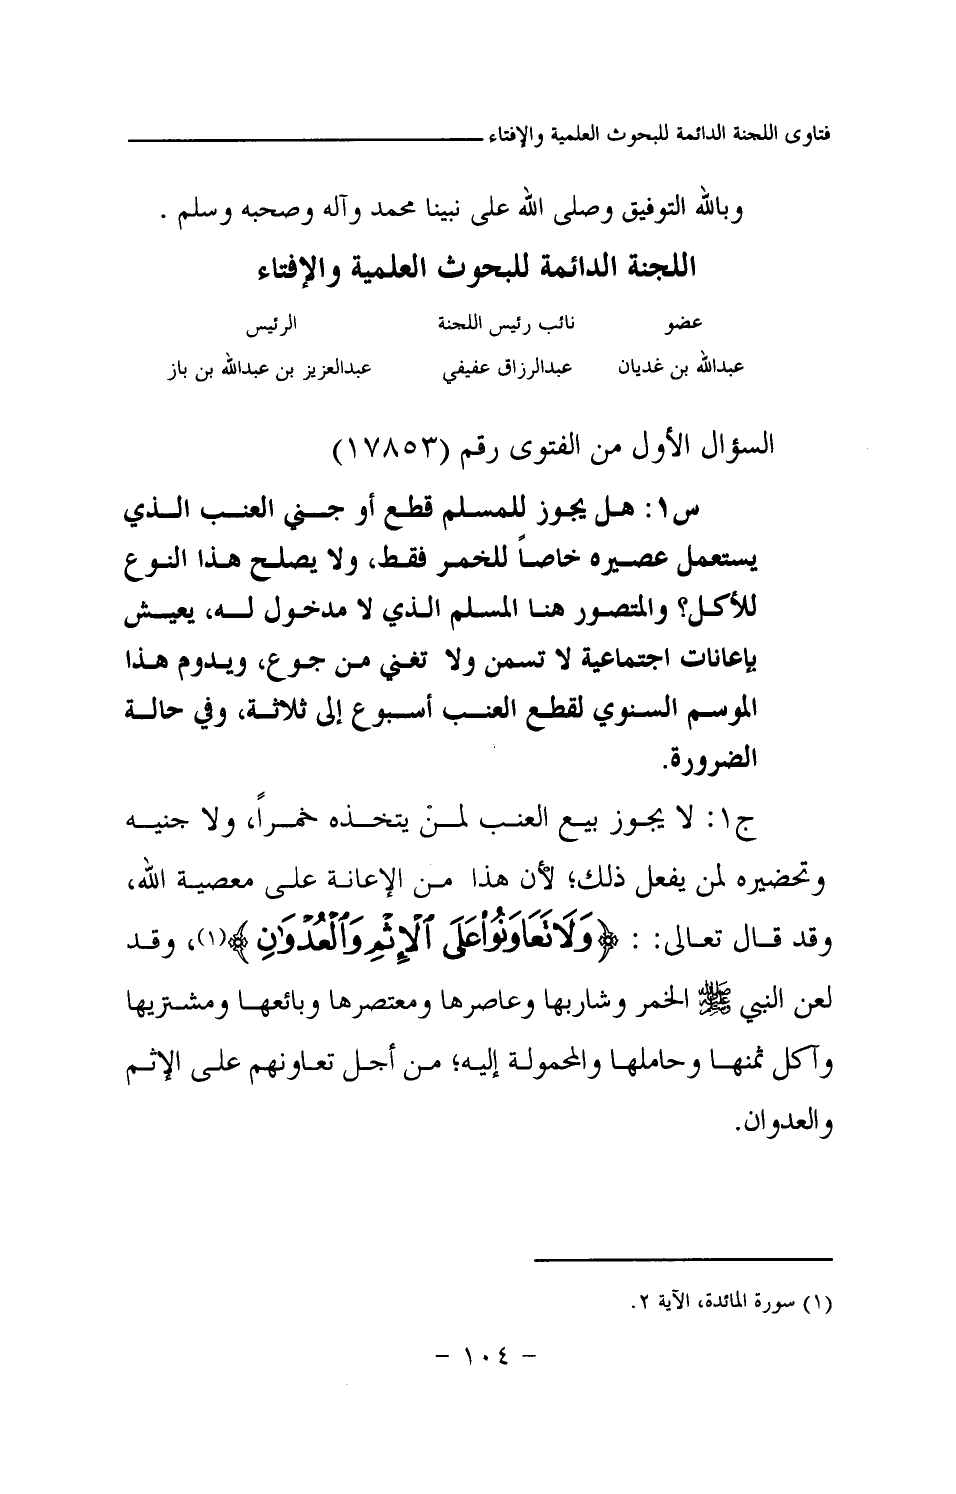 فتاوى اللجنة الدائمة للبحوث العلمية والإفتاء
وبالله التوفيق وصلى الله على نبينا محمد وآله وصحبه وسلم .
اللجنة الدائمة للبحوث العلمية والإفتاء
عضو نائب رئيس اللجنة الرئيس
عبدالله بن غديان عبدالرزاق عفيفي عبدالعزيز بن عبدالله بن باز
السؤال الأول من الفتوى رقم (١٧٨٥٣)
س١: هل يجوز للمسلم قطع أو جني العنب الذي
يستعمل عصيره خاصاً للخمر فقط، ولا يصلح هذا النوع
للأكل؟ والمتصور هنا المسلم الذي لا مدخول له، يعيش
بإعانات اجتماعية لا تسمن ولا تغني من جوع، ويدوم هذا
الموسم السنوي لقطع العنب أسبوع إلى ثلاثة، وفي حالة
الضرورة.
ج١: لا يجوز بيع العنب لمنْ يتخذه خمراً، ولا جنيه
وتحضيره لمن يفعل ذلك؛ لأن هذا من الإعانة على معصية الله،
وقد قال تعالى: : ﴿وَلَا تَعَاوَنُوا۟ عَلَى ٱلْإِثْمِ وَٱلْعُدْوَٰنِ﴾(١)، وقد
لعن النبي ﷺ الخمر وشاربها وعاصرها ومعتصرها وبائعها ومشتريها
وآكل ثمنها وحاملها والمحمولة إليه؛ من أجل تعاونهم على الإثم
والعدوان.
(١) سورة المائدة، الآية ٢.
- ١٠٤ -